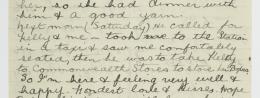 her, so she had dinner with
him & a good yarn.
Next morn (Saturday) he called for
Kelly & me – took me to the Station
in a taxi & saw me comfortably
seated, then he was to take Kelly
to Commonwealth Stores to store his Boxes
So I'm here & feeling very well &
happy. Fondest love & kisses. Hope